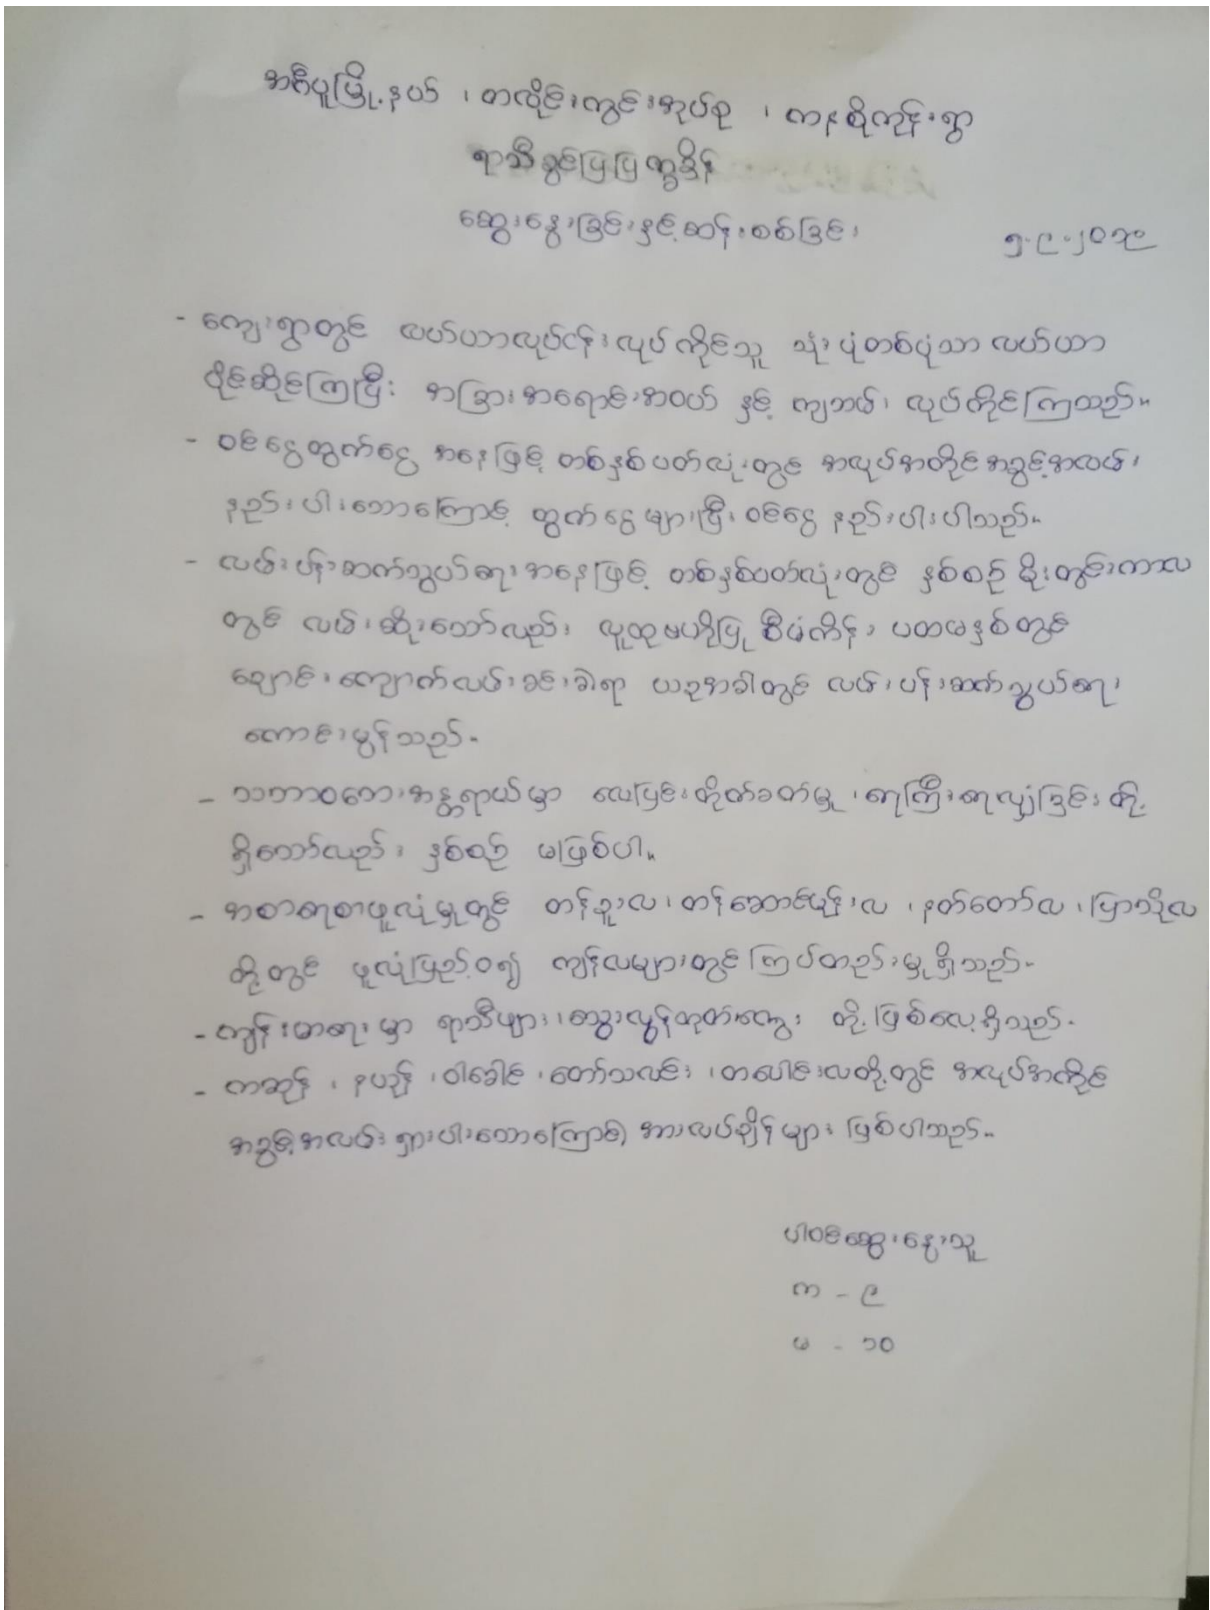 အင်္ဂပူမြို့နယ် ၊ တလိုင်းကွင်းအုပ်စု ၊ ကနစိုကုန်းရွာ
ရာသီခွင်ပြပြက္ခဒိန်
ဆွေးနွေးခြင်းနှင့်ဆန်းစစ်ခြင်း ၅-၉-၂၀၁၉
- ကျေးရွာတွင် လယ်ယာလုပ်ငန်းလုပ်ကိုင်သူ သုံးပုံတစ်ပုံသာ လယ်ယာ
ပိုင်ဆိုင်ကြပြီး အခြားအရောင်းအဝယ် နှင့် ကျဘမ်း လုပ်ကိုင်ကြသည်။
- ဝင်ငွေထွက်ငွေ အနေဖြင့် တစ်နှစ်ပတ်လုံးတွင် အလုပ်အကိုင်အခွင့်အလမ်း
နည်းပါးသောကြောင့် ထွက်ငွေများပြီး ဝင်ငွေ နည်းပါးပါသည်။
- လမ်းပန်းဆက်သွယ်ရေးအနေဖြင့် တစ်နှစ်ပတ်လုံးတွင် နှစ်စဉ် မိုးတွင်းကာလ
တွင် လမ်းဆိုးသော်လည်း လူထုဗဟိုပြုစီမံကိန်း ပထမနှစ်တွင်
ချောင်းကျောက်လမ်းခင်းခဲ့ရာ ယခုအခါတွင် လမ်းပန်းဆက်သွယ်ရေး
ကောင်းမွန်သည်။
- သဘာဝဘေးအန္တရာယ်မှာ လေပြင်းတိုက်ခတ်မှု ၊ ရေကြီးရေလျှံခြင်း တို့
ရှိသော်လည်း နှစ်စဉ် မဖြစ်ပါ။
- အစာရေစာဖူလုံမှုတွင် တန်ခူးလ ၊ တန်ဆောင်မုန်းလ ၊ နတ်တော်လ ၊ ပြာသိုလ
တို့တွင် ဖူလုံပြည့်ဝ၍ ကျန်လများတွင် ကြပ်တည်းမှု ရှိသည်။
- ကျန်းမာရေးမှာ ရာသီဖျား ၊ သွေးလွန်တုတ်ကွေး တို့ဖြစ်လေ့ရှိသည်။
- ကဆုန် ၊ နယုန် ၊ ဝါခေါင် ၊ တော်သလင်း ၊ တပေါင်းလတို့တွင် အလုပ်အကိုင်
အခွင့်အလမ်း ရှားပါးသောကြောင့် အားလပ်ချိန်များ ဖြစ်ပါသည်။
ပါဝင်ဆွေးနွေးသူ
က - ၉
မ - ၁၀